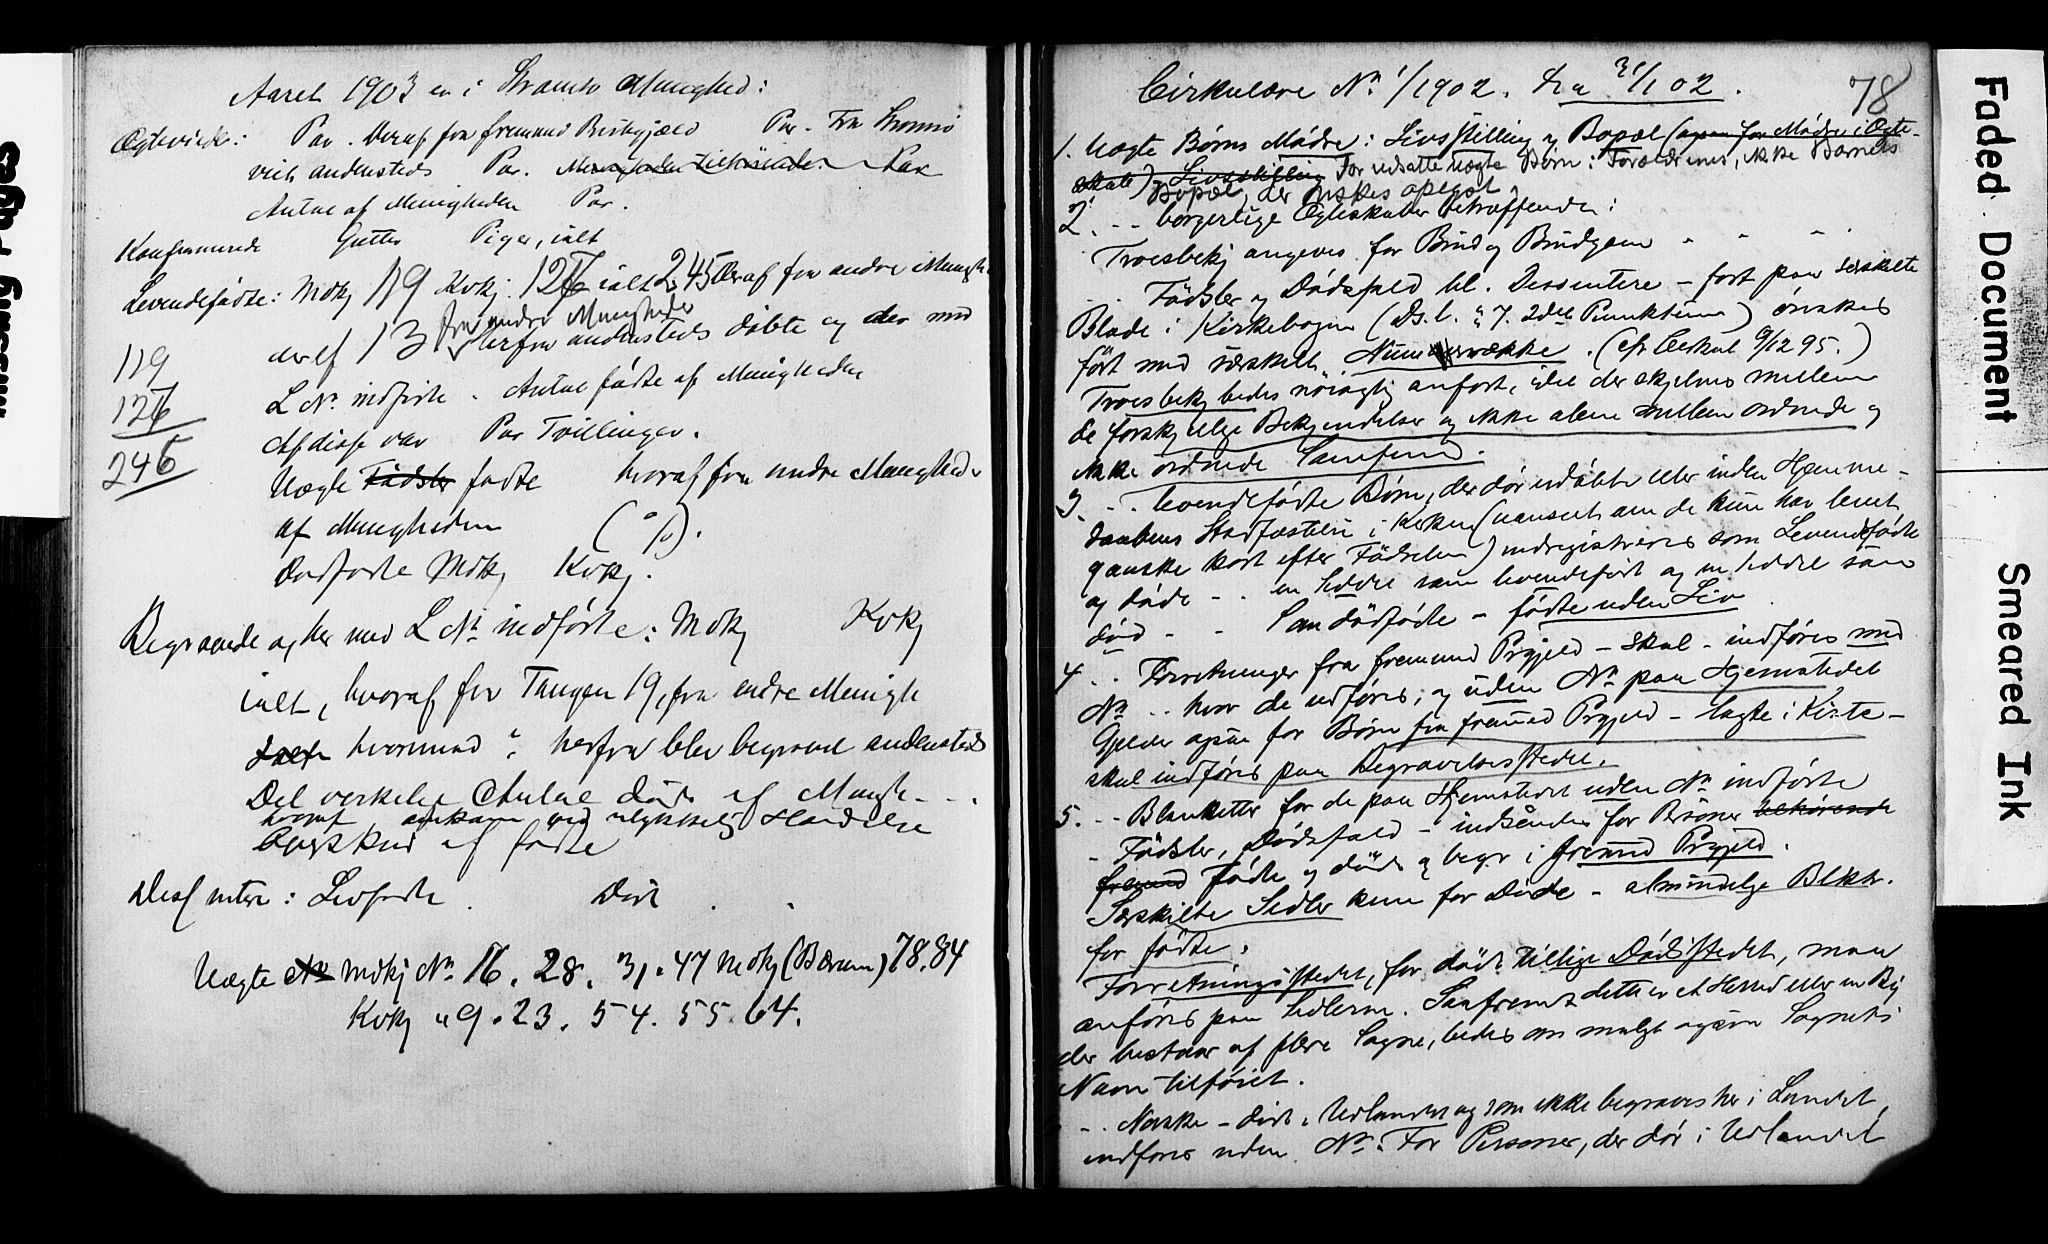 Aaret 1903 er i Strømsø Menighed:
Ægteviede: Par. Deraf fra fremmed Præstegjæld Par. Fra Strømsø
viet andensteds Par.
Antal af Menigheden Par.
Konfirmerede Gutter Piger, ialt
Levendefødte: Mdkj 119 Kvkj. 126 ialt 245 Deraf fra andre Mengh.
fra andre Menigheder
deraf 13 herfra andensteds døbte og der med
119
L No indførte. Antal fødte af Menigheden
126
Af disse var Par Tvillinger.
245
Uægte Fødsler fødte hvoraf fra andre Menigheder
af Menigheden ( %).
Dødfødte Mdkj Kvkj.
Begravede og her med L No indførte: Mdkj Kvkj
ialt, hvoraf fra Tangen 19, fra andre Menigh
hvorimod herfra blev begravet andensteds
Det virkelige Antal døde af Mengh - - .
hvoraf omkom ved ulykkelig Hændelse
Overskud af fødte
Dissentere: Levfødte . Døde . .
Uægte No Mdkj No 16. 28. 31. 47 Mdkj (Bærum) 78. 84
Kvkj " 9. 23. 54. 55. 64.
Cirkulære No 1/1902. fra 31/1 02.
78
1. Uægte Børns Mødre: Livsstilling og Bopæl (ogsaa for Mødre i Ægte-
skab) Livsstilling For udsatte uægte Børn: Forældrenes, ikke Barnets
Bopæl, der ønskes opgivet
2. - - borgerlige Ægteskaber betræffende:
Troesbekj angives for Brud og Brudgom - - -
- - Fødsler og Dødsfald bl. Dissentere - ført paa særskilte
Blade i Kirkebogen (Ds.l. § 7. 2det Punktum) ønskes
ført med særskilt Nummerrække. (cfr Cirkul 9/12 95.)
Troesbekj bedes nøiagtig anført, idet der skjelnes mellem
de forskjellige Bekjendelser og ikke alene mellem ordnede og
ikke ordnede Samfund.
3. - . levendefødte Børn, der dør udøbte eller inden Hjemme-
daabens Stadfæstelse i Kirken (uanseet om de kun har levet
ganske kort efter Fødselen) indregistreres som Levendefødte
og døde - . en Seddel som levendefødt og en Seddel som
død - - Som dødfødte - fødte uden Liv
4. . Forretninger fra fremmed Prgjeld - skal - indføres med
No . . hvor de udføres; og uden No paa Hjemstedet
Gjelder ogsaa for Børn fra fremmed Prgjeld - lagte i Kiste -
skal indføres paa Begravelsesstedet.
5. - - Blanketter for de paa Hjemstedet uden No indførte
- Fødsler, Dødsfald - indsendes for Personer
fremmed fødte og døde og begr i fremmed Prgjeld.
Særskilte Sedler kun for Døde - almindelige Blktr.
for fødte.
Forretningsstedet, for døde tillige Dødsstedet, maa
anføres paa Sedlerne. Saafremt dette er et Herred eller en By
der bestaar af flere Sogne, bedes om muligt ogsaa Sognets
Navn tilføiet.
- . Norske - døde i Udlandet og som ikke begraves her i Landet,
indføres uden No. For Personer, der dør i Udlandet
Faded Document
Smeared Ink
Missing Pages